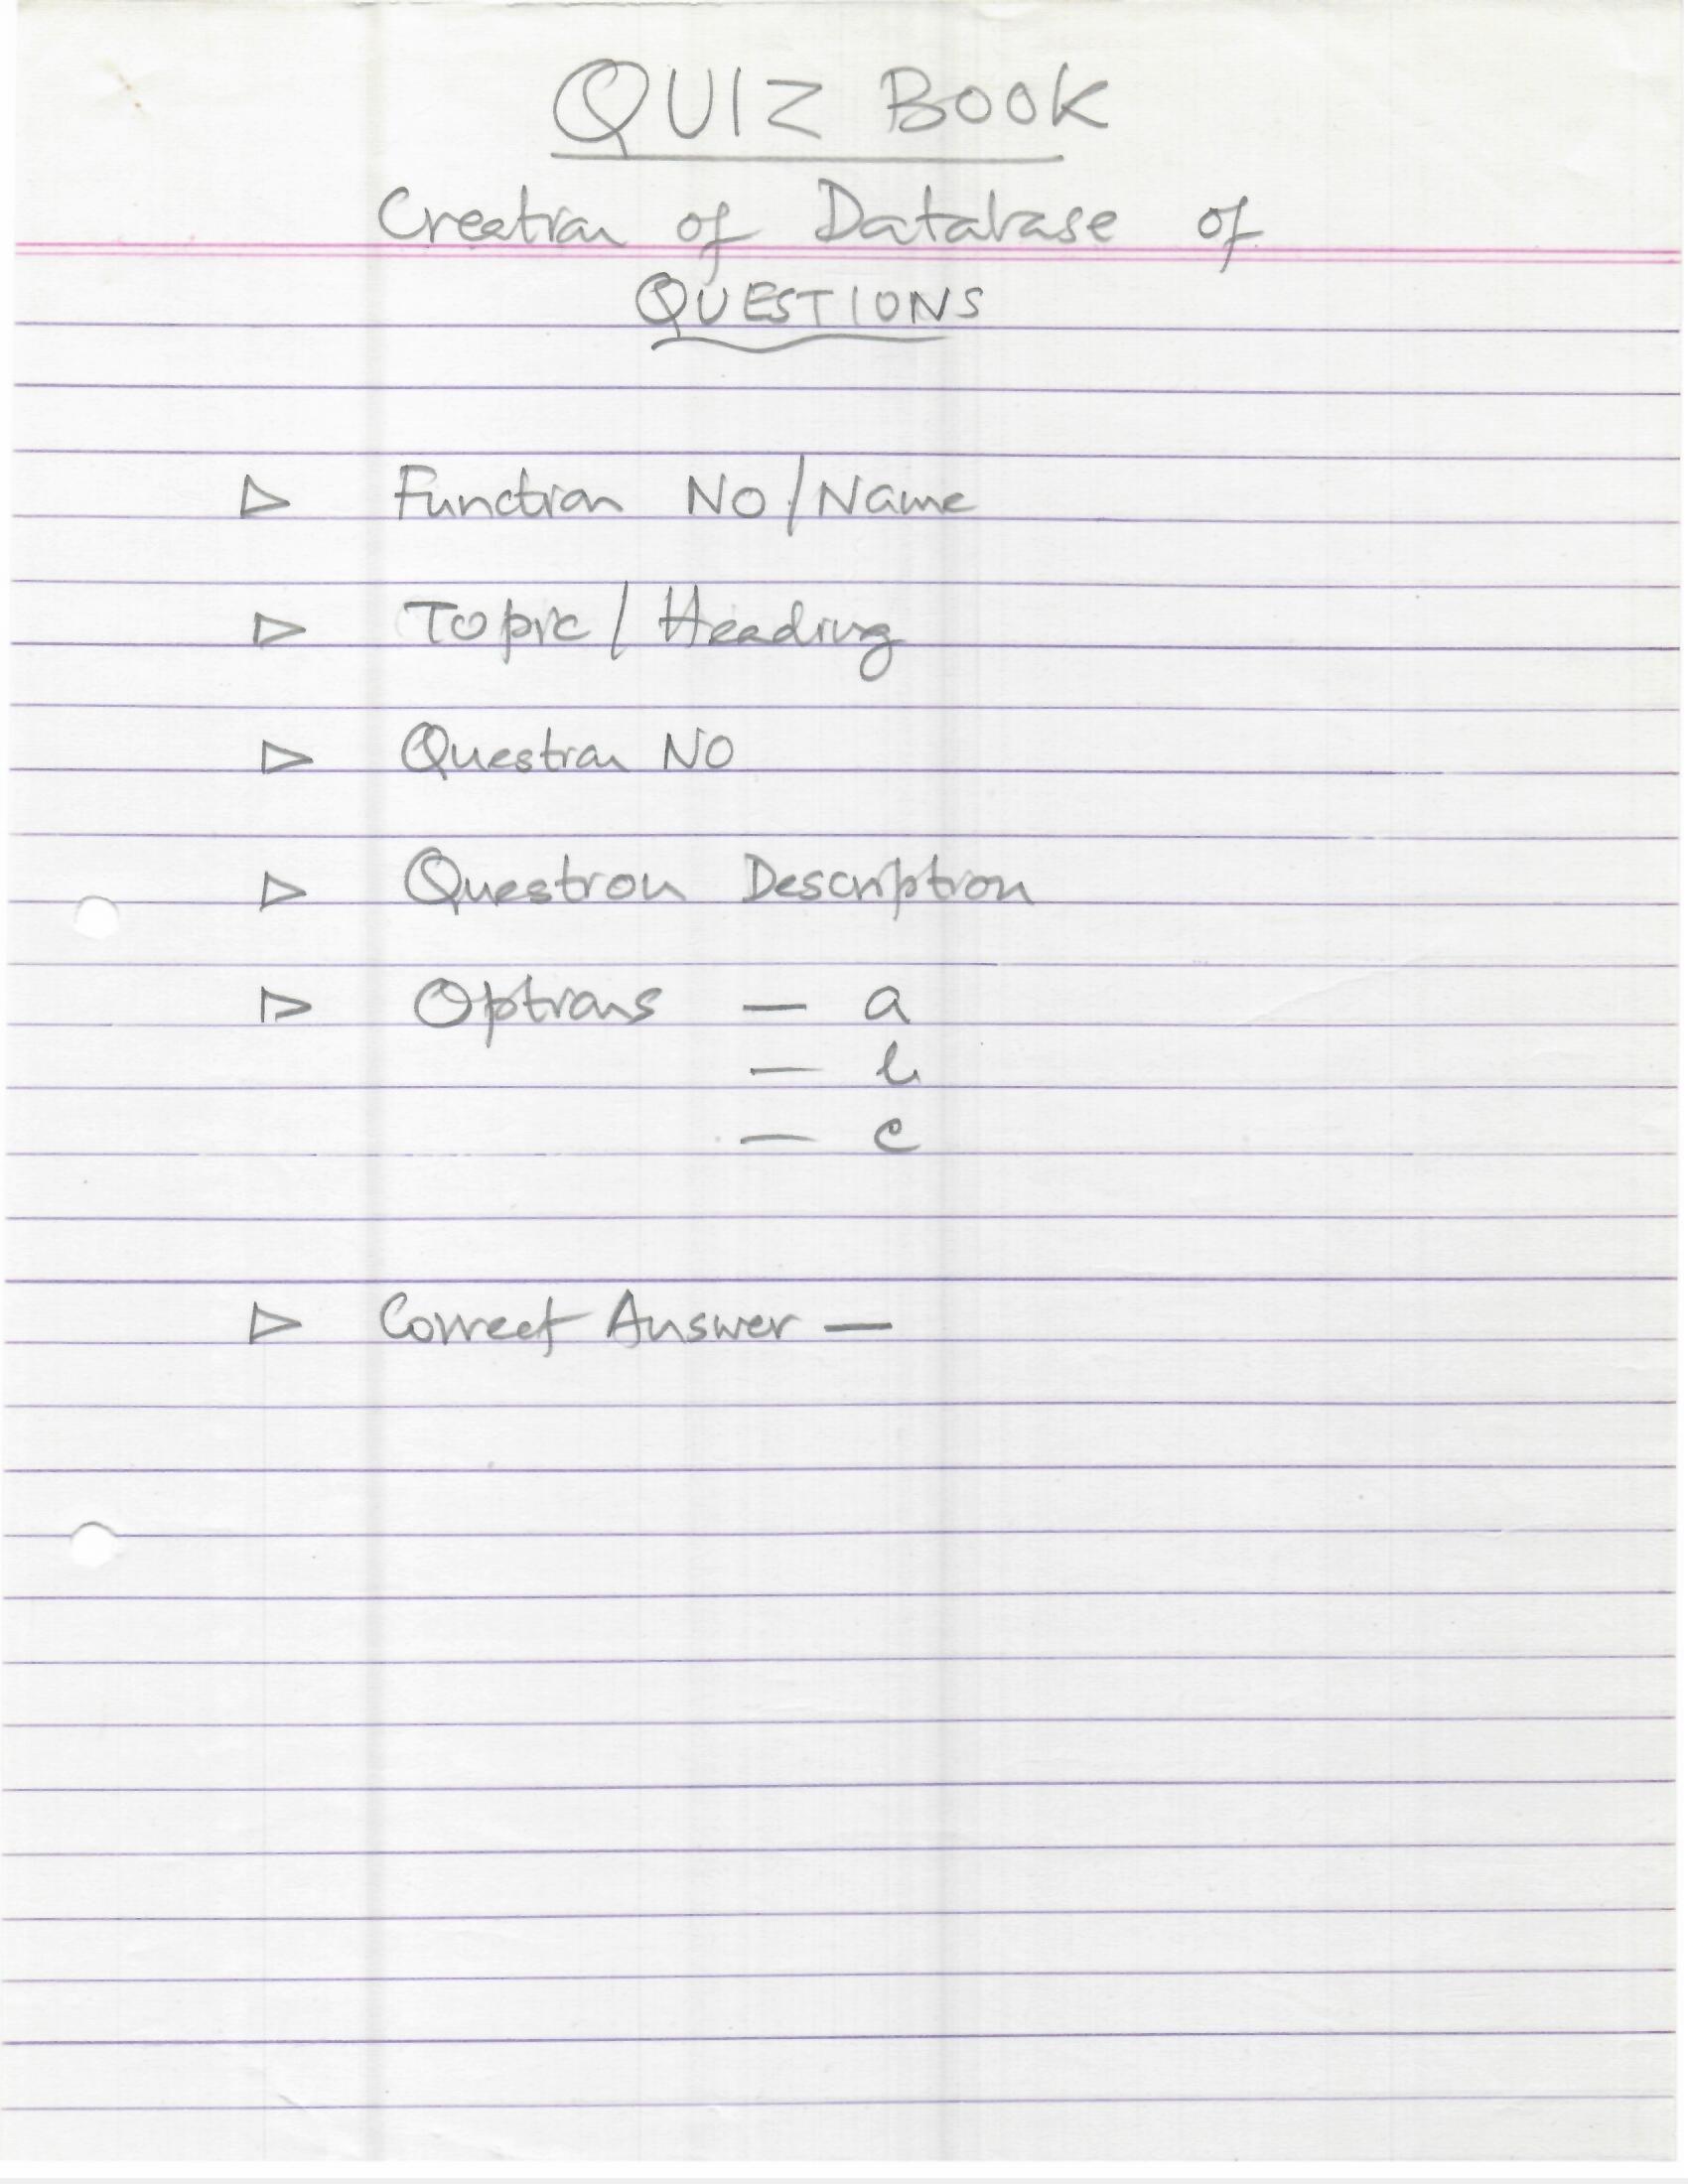 QUIZ BOOK
Creation of Database of
QUESTIONS
▷ Function No/Name
▷ Topic / Heading
▷ Question NO
▷ Question Description
▷ Options — a
— b
— c
▷ Correct Answer —